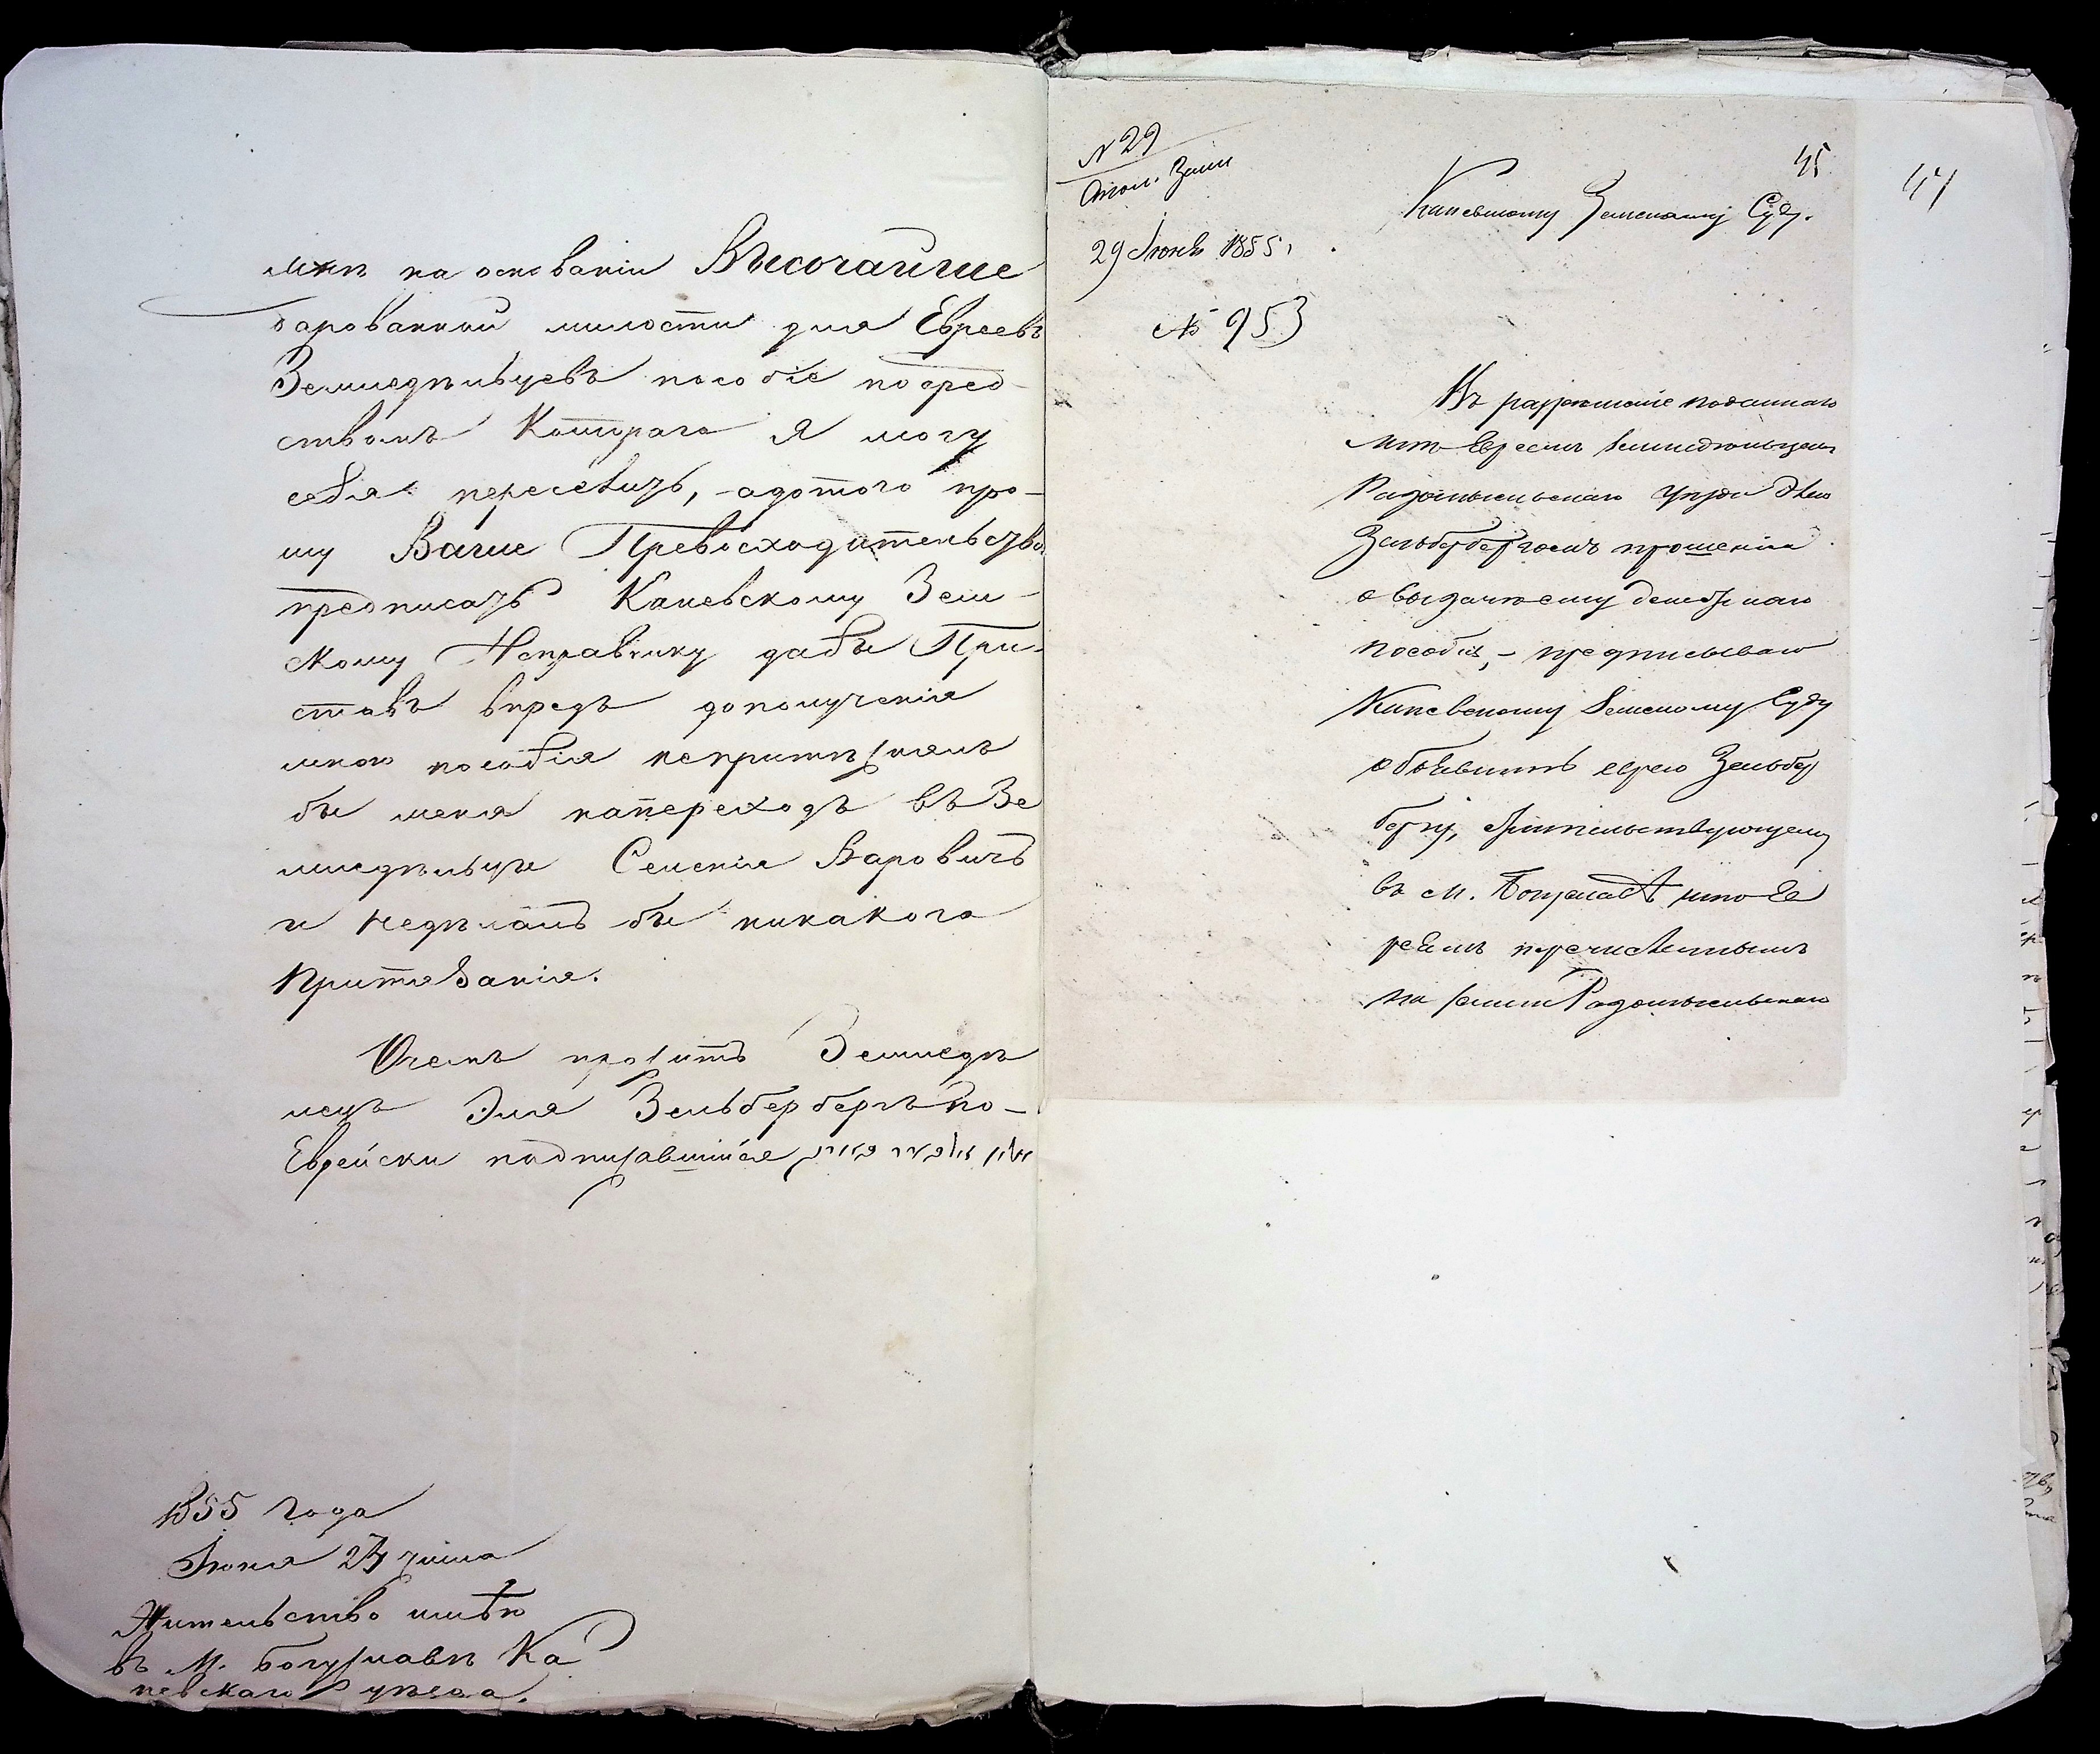 мнѣ на основаніи Высочайше
дарованной милости для Евреевъ
Земледѣльцевъ пособіе посред-
ствомъ Которага я могу
себя пересѣлить, -адотого про-
шу Ваше Превосходительство
предписать Каневскому Зем-
скому Исправнику дабы При-
ставъ впредъ дополученія
мною пособія непритѣснялъ
бы меня напереходъ въ Зе
мледѣльцы Селенія Варовичъ
и неделалъ бы никакога
притязанія.
Очемъ проситъ Земледѣ
лецъ Эля Зельберберъ по-
Еврейски подписавшійся
1855 года
Июня 27 числа
Жительство имѣю
въ М. Богуславѣ Ка
невскаго уѣзда.
№ 29
29 Июня 1855 г.
№ 953
45
47
Каневскому Земскому Суду.
Въ разрѣшеніе поданнаго
мнѣ Евреемъ земледѣльцемъ
Радомысльскаго уѣзда Элею
Зельбербергомъ прошенія
о выдачѣ ему денежнаго
пособія, - предписываю
Каневскому Земскому Суду
объявить еврею Зельбер
бергу, жительствующему
въ м. Богуславѣ, что Ев
реямъ перечисленнымъ
на земли Радомысльскаго